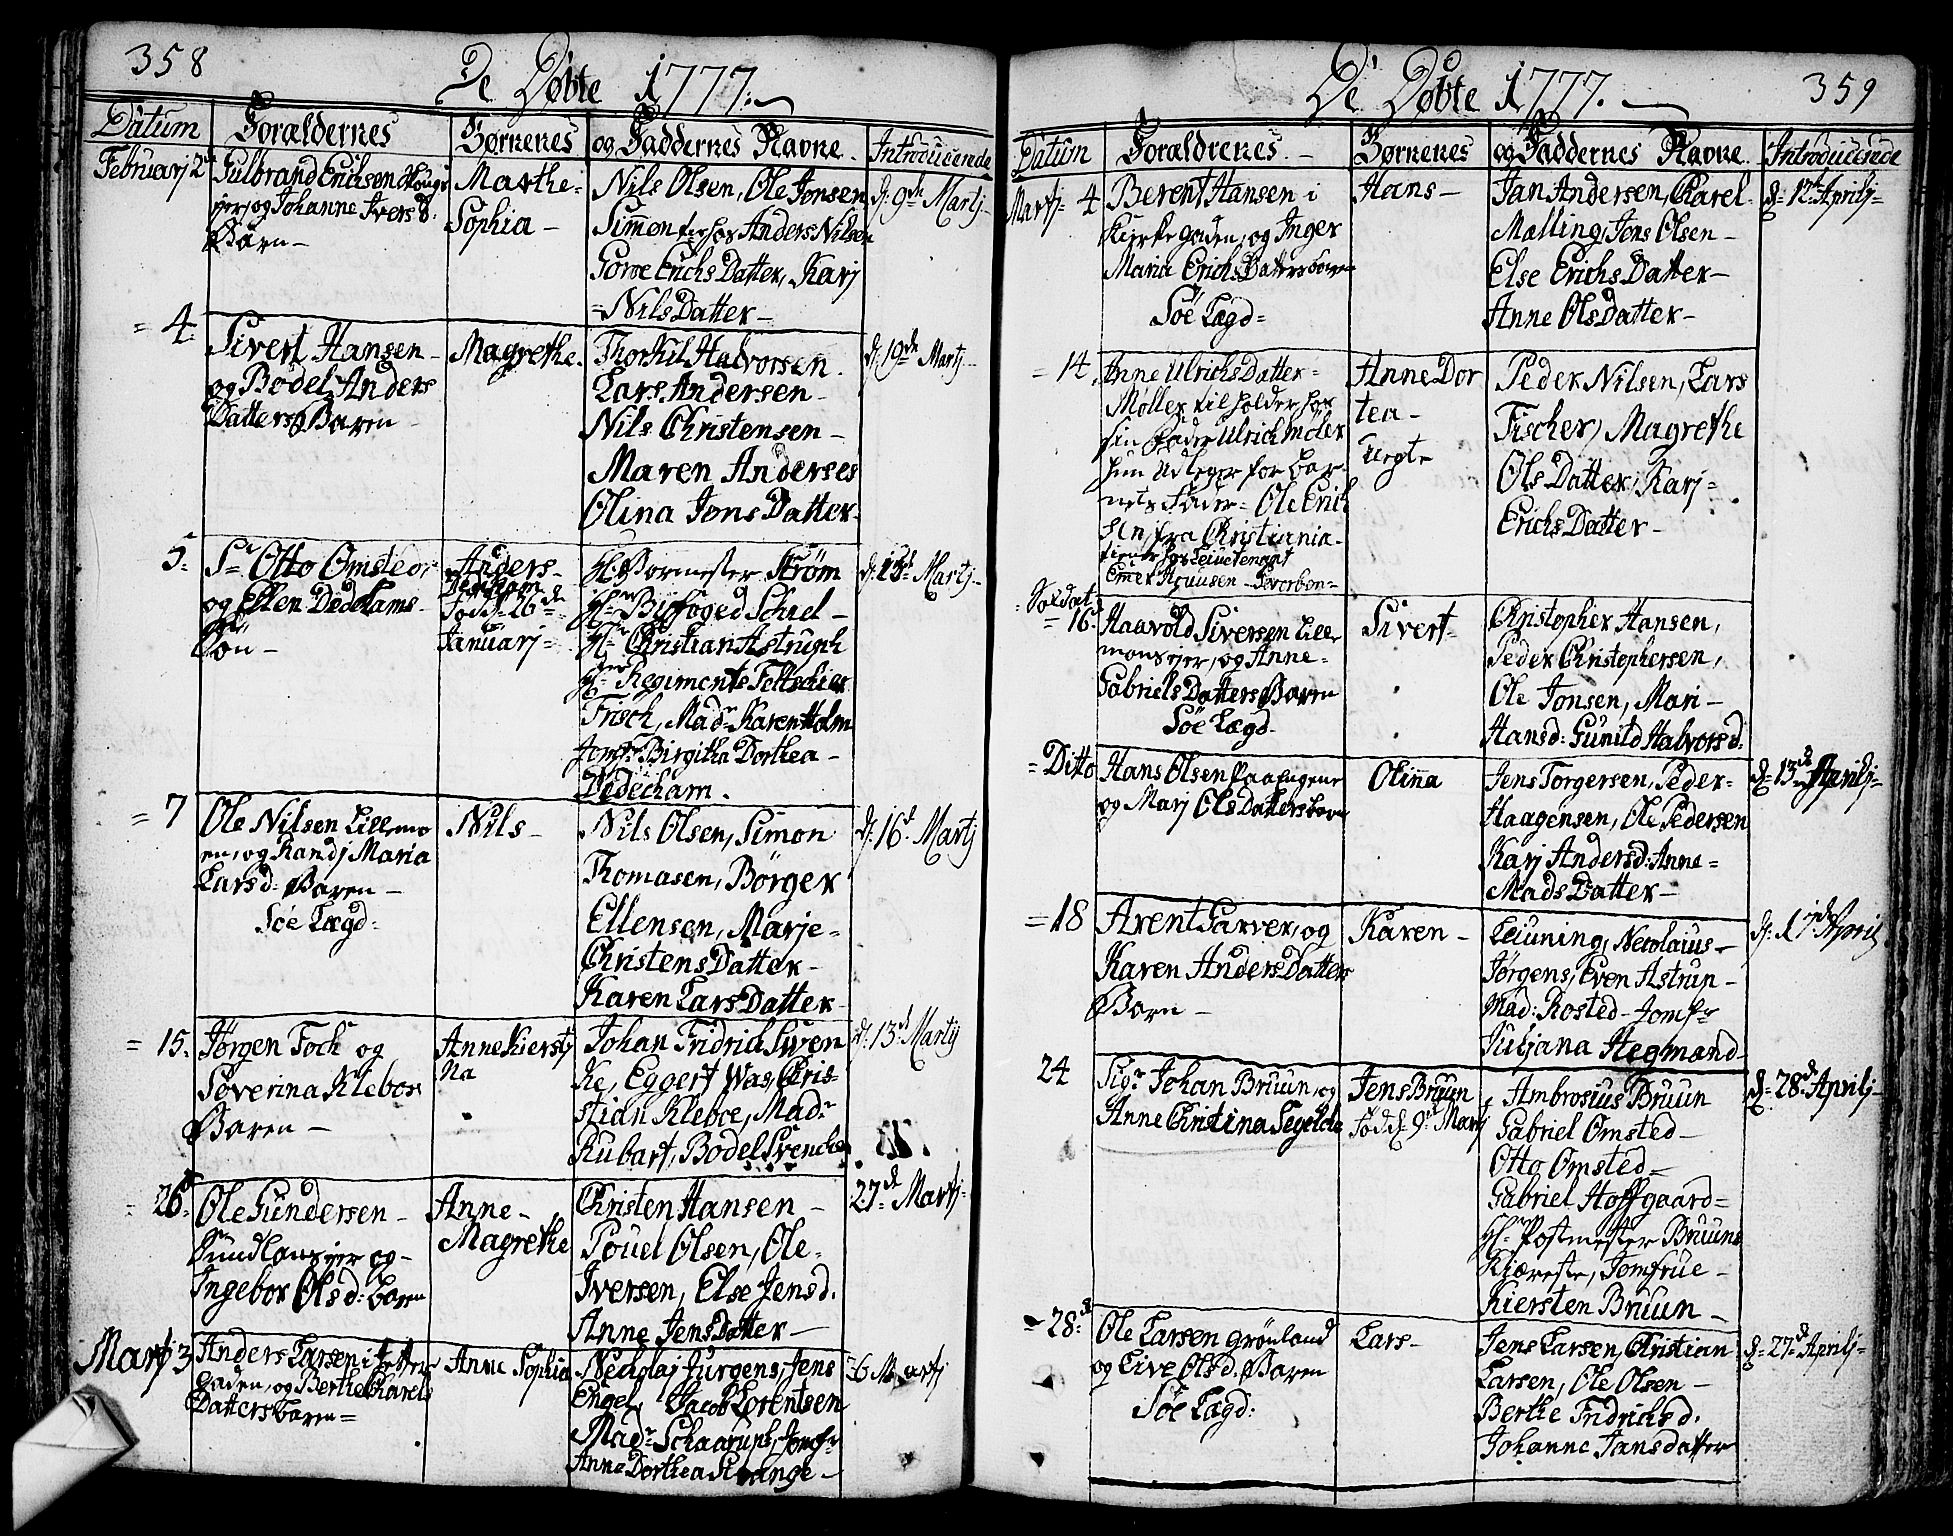 358
De Døbte 1777.
Datum
Forældernes
Børnenes
og Faddernes Navne.
Introducerede
Februarj 2
Gulbrand Erichsen
ejer, og Johanne Ivers D.
Barn -
Marthe-
Sophia -
Nils Olsen, Ole Jonsen
Simon Anders Nilsen
Gorve Erichs Datter, Karj
= Nils Datter -
d. 9de Martj -
= 4.
Sivert Hansen -
og Bodel Anders
Datters Barn -
Magrethe.
Thorkil Halvorsen.
Lars Andersen -
Nils Christensen -
Maren Anderses
Olina Jons Datter.
d. 19de Martj -
5.
Sr Otto Omsted,
og Ellen Dedekams
Søn -
Anders-
Dedekam
Fød d. 26de
Januarj =
Hr Bormester Strøm
Hr Byfoged Schiel -
Hr Christian Astruph
Hr Regiments Feltskier
Frisch, Madr Karen Holm
Jomfr Birgitha Dorthea -
Dedecham.
d. 13d Martj -
= 7
Ole Nilsen Lillemo
en, og Randj Maria
Larsd. Barn -
Søe Lægd:
Nils -
Nils Olsen, Simon
Thomasen, Børger
Ellensen, Marje =
Christens Datter -
Karen Lars Datter -
d. 16d Martj
= 15.
Jørgen Foch og
Søverina Klebos
Barn -
Anne Kiersti
na
Johan Fridrich Swen
ke, Eggert Was, Chris-
stian Kleboe, Madr
Kubart, Bodel Svencke
d. 13d Martij
= 26d
Ole Gundersen -
Sundlandsejer og -
Ingebor Olsd: barn
Anne -
Magrethe
Christen Hansen -
Pouel Olsen, Ole -
Iversen, Else Jensd.
Anne Jens Datter -
27d Martj -
Martj 3
Anders Larsen i
Gaden, og Berthe Charels
Datters barn =
Anne Sophia
Neckolaj Jurgens, Jens
Engel, Jacob Lorentsen
Madr Schaarup, Jomfr
Anne Dorthea Strange -
36 Martj
De Døbte 1777.
359
Datum
Forældrenes. -
Børnenes
og Faddernes Navne.
Introducerede
Martj = 4
Berent Hansen i
Kierke gaden, og Inger
Maria Erichs Datters barn
Søe Lægd =
Hans -
Jan Andersen, Charel
Malling, Jens Olsen -
Else Erichs Datter -
Anne Ols Datter -
d. 12te Aprilj =
= 14.
Anne Ulrichs Datter =
Møller til holder hos
sin Fader Ulrich Møler
hun udleger for bar
nets Fader = Ole Erich
sen, fra Christiania -
tiener hos Leiutenant
Huusen -
Anne Dor
tea -
uegte
Peder Nilsen, Lars
Fischer, Magrethe
Ols Datter, Karj =
Erichs Datter -
= Soldat
= 16d
Haavold Siversen Lille
mons ejer, og Anne =
Gabriels Datters Barn
Søe Lægd -
Sivert -
Christopher Hansen,
Peder Christophersen,
Ole Jonsen, Mari -
Hansd: Gunild Halvorsd:
= Ditto
Hans Olsen Paa Engene
og Marj Ols Datters barn
Olina
Jens Torgersen, Peder -
Haagensen, Ole Pedersen
Karj Andersd: Anne =
Mads Datter -
d. 13d Aprilj =
= 18
Arent Garver, og
Karen Anders Datters
Barn -
Karen -
Leuning, Necolaius -
Jørgens, Even Astrup -
Mad: Rosted - Jomfr
Juljana Hegmand -
d. 17de April
24
Sigr Johan Bruun, og
Anne Christina Segelche
Jens Bruun
Fød d. 9d Martj
Ambrosius Bruun
Gabriel Omsted -
Otto Omsted =
Gabriel Hoffgaard =
Hr Postmester Bruuns
Kiæreste, Jomfrue -
Kiersten Bruun -
d. 28d Aprilj -
= 28d
Ole Larsen Grønland
og Live Olsd. Barn
Søe Lægd:
Lars -
Jens Larsen, Christian
Larsen, Ole Olsen -
Berthe Fridrichsd.
Johanne Jansdatter
d. 27d Aprilj -